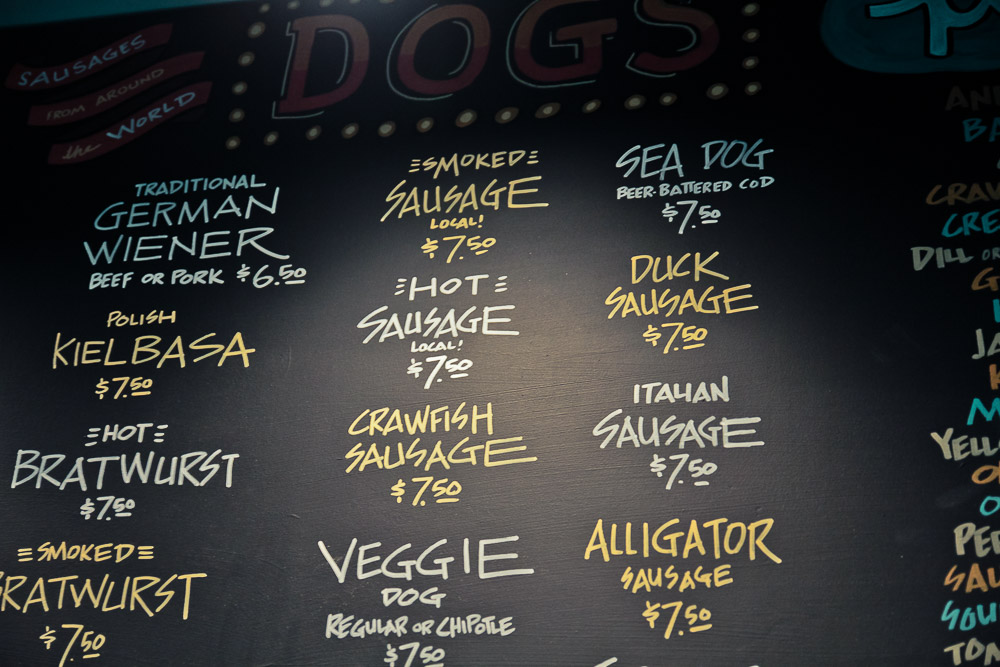 DOGS
SAUSAGES
FROM AROUND
the WORLD
TRADITIONAL
GERMAN
WIENER
BEEF OR PORK $6.50
POLISH
KIELBASA
$7.50
HOT
BRATWURST
$7.50
SMOKED
BRATWURST
$7.50
SMOKED
SAUSAGE
LOCAL!
$7.50
HOT
SAUSAGE
LOCAL!
$7.50
CRAWFISH
SAUSAGE
$7.50
VEGGIE
DOG
REGULAR OR CHIPOTLE
$7.50
SEA DOG
BEER-BATTERED COD
$7.50
DUCK
SAUSAGE
$7.50
ITALIAN
SAUSAGE
$7.50
ALLIGATOR
SAUSAGE
$7.50
DILL OR